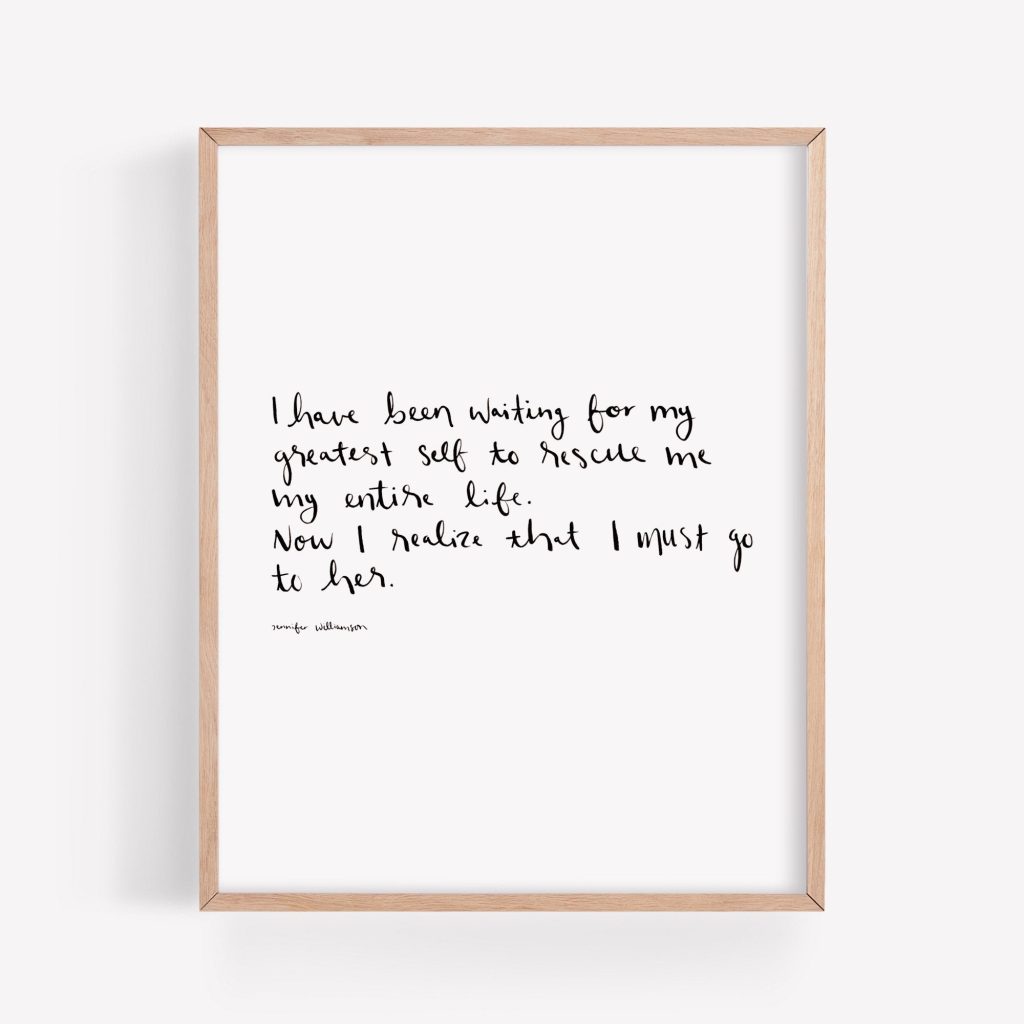 I have been waiting for my
greatest self to rescue me
my entire life.
Now I realize that I must go
to her.
Jennifer Williamson